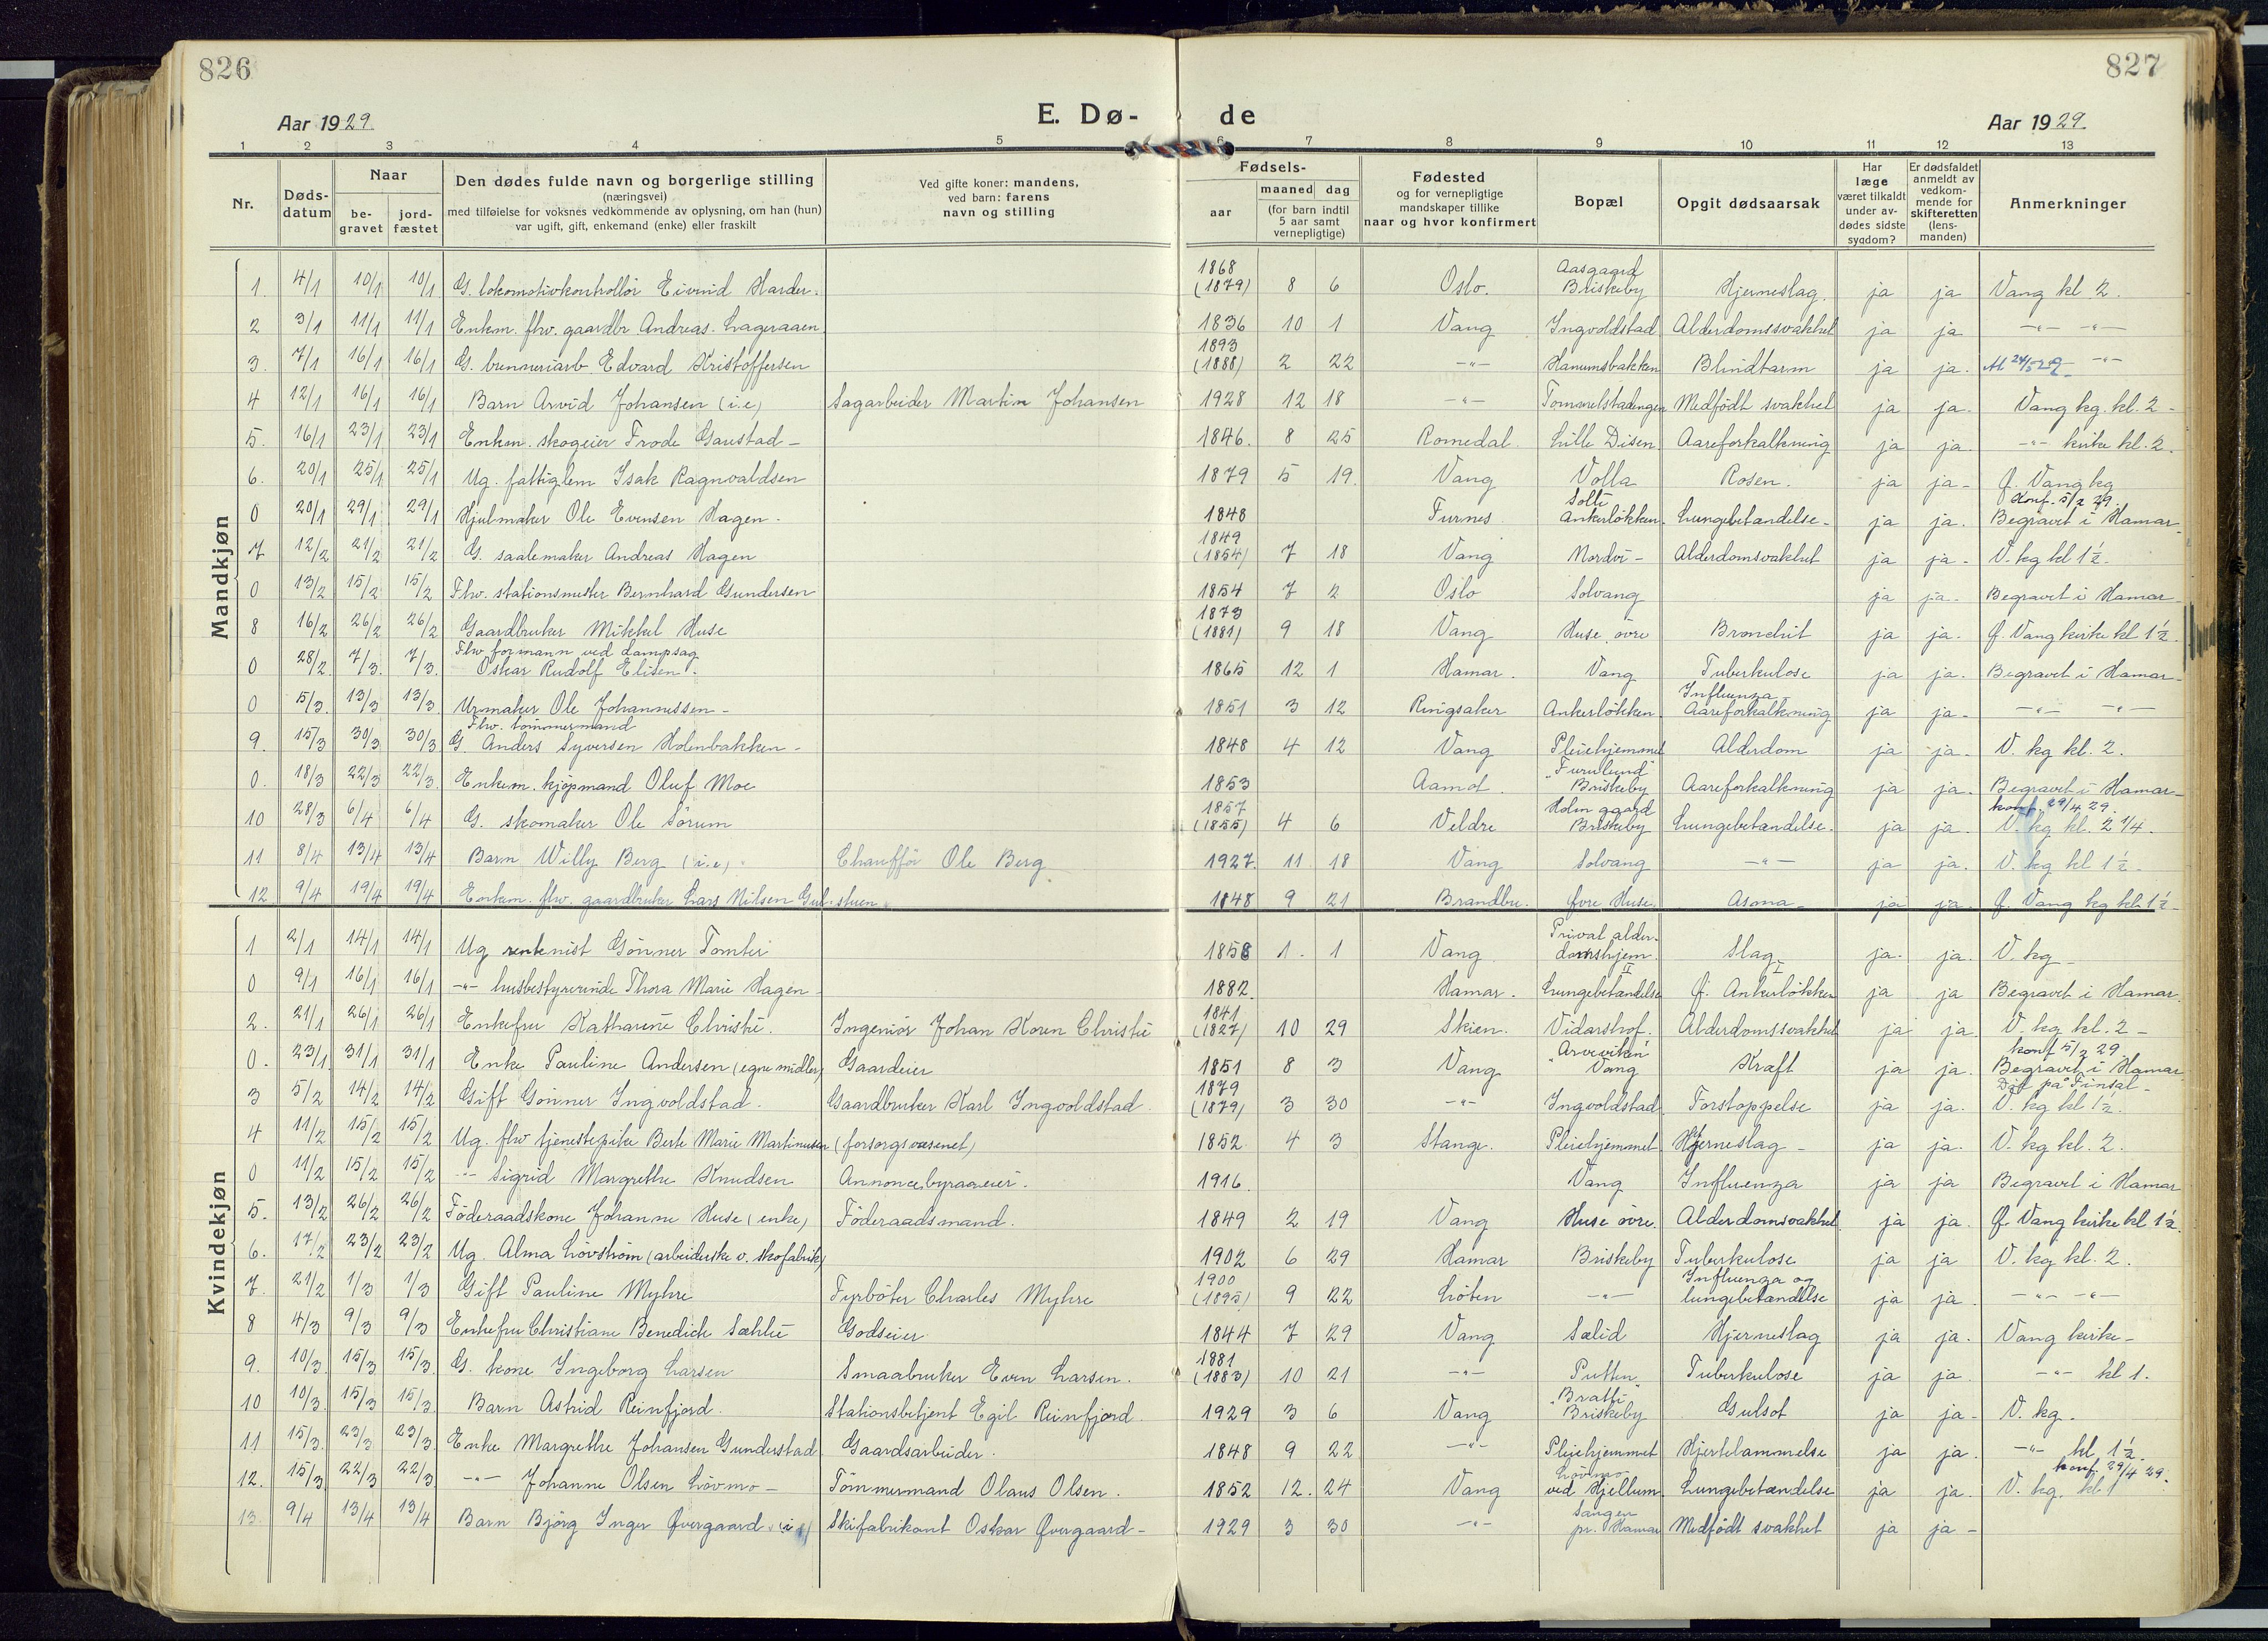 826
827
Aar 1929.
E. Dø-
de
Aar 1929.
1 2 3 4 5 6 7 8 9 10 11 12 13
Nr.
Døds-
datum
Naar
be-
gravet
jord-
fæstet
Den dødes fulde navn og borgerlige stilling
(næringsvei)
med tilføielse for voksnes vedkommende av oplysning, om han (hun)
var ugift, gift, enkemand (enke) eller fraskilt
Ved gifte koner: mandens,
ved barn: farens
navn og stilling
Fødsels-
aar
maaned dag
(for barn indtil
5 aar samt
vernepligtige)
Fødested
og for vernepligtige
mandskaper tillike
naar og hvor konfirmert
Bopæl
Opgit dødsaarsak
Har
læge
været tilkaldt
under av-
dødes sidste
sygdom?
Er dødsfaldet
anmeldt av
vedkom-
mende for
skifteretten
(lens-
manden)
Anmerkninger
Mandkjøn
1. 4/1 10/1 10/1 G. lokomotivkontrollör Eivind Harder. 1868 (1879) 8 6 Oslo. Aasgaard Briskeby Hjerneslag. ja ja Vang kl. 2.
2 3/1 11/1 11/1 Enkm. fhv. gaardbr Andreas Lageraaen 1836 10 1 Vang Ingvoldstad Alderdomssvakhet ja ja -"- -"-
3. 7/1 16/1 16/1 G. brenneriarb. Edvard Kristoffersen 1893 (1888) 2 22 -"- Hanumsbakken Blindtarm ja ja. 24/5 29 -"-
4 12/1 16/1 16/1 Barn Arvid Johansen (i.e) Sagarbeider Martin Johansen 1928 12 18 -"- Tommelstadengen Medfödt svakhet ja ja. Vang kg. kl. 2-
5. 16/1 23/1 23/1 Enkm. skogeier Frode Gaustad- 1846. 8 25 Romedal. Lille Disen Aareforkalkning ja ja. -"- kirke kl. 2.
6. 20/1 25/1 25/1 Ug. fattiglem Isak Ragnvaldsen 1879 5 19. Vang Volla Rosen. ja ja- Ø. Vang kg
0 20/1 29/1 29/1 Hjulmaker Ole Evensen Hagen. 1848 Furnes Solli Ankerlökken. Lungebetændelse- ja ja. Konf. 5/2 29. Begravet i Hamar
7. 12/2 21/2 21/2 G. saalemaker Andreas Hagen 1849 (1854) 7 18 Vang Nordvi- Alderdomsvakhet ja ja- V. kg kl 1½.
0 13/2 15/2 15/2 Fhv. stationsmester Bernhard Gundersen 1854 7 2 Oslo Solvang ja ja. Begravet i Hamar
8 16/2 26/2 26/2 Gaardbruker Mikkel Huse 1873 (1881) 9 18 Vang Huse övre Bronchit ja ja. Ø. Vang kirke kl 1½.
0 28/2 7/3. 7/3. Fhv formann ved dampsag Oskar Rudolf Elisen. 1865 12 1 Hamar. Vang Tuberkulose ja ja. Begravet i Hamar
0 5/3. 13/3 13/3 Urmaker Ole Johannessen- 1851 3 12 Ringsaker Ankerlökken Influenza Aareforkalkning ja ja- -"- -"-
9. 15/3 30/3 30/3 Fhv. tömmermand G. Anders Syversen Holenbakken- 1848 4 12 Vang Pleiehjemmet Alderdom ja ja- V. kg kl. 2.
0. 18/3 22/3 22/3 Enkem. kjöpmand Oluf Moe 1853 Aamot. "Furulund" Briskeby Aareforkalkning ja ja. Begravet i Hamar
10 28/3 6/4 6/4 G. skomaker Ole Sörum 1857 (1855) 4 6 Veldre Holm gaard Briskeby Lungebetændelse. ja ja. konf. 29/4 29. V. kg kl. 2 1/4.
11 8/4 13/4 13/4 Barn Willy Berg (i.e) Chaufför Ole Berg 1927. 11. 18 Vang Solvang -"- ja ja. V. kg kl 1½-
12 9/4 19/4 19/4 Enkem. fhv. gaardbruker Lars Nilsen Gulstuen 1848 9 21 Brandbu. Øvre Huse. Asma- ja ja. Ø. Vang kg kl. 1½-
Kvindekjøn
1 2/1 14/1 14/1 Ug rentenist Gönner Tomter 1858 1. 1 Vang Privat alder- domshjem. Slag ja. ja. V. kg-
0 9/1 16/1 16/1 -"- husbestyrerinde Thora Marie Hagen. 1882. Hamar. II Lungebetændelse I Ø. Ankerlökken ja ja Begravet i Hamar.
2. 21/1 26/1 26/1 Enkefru Katharine Christie. Ingeniör Johan Koren Christie 1841 (1827) 10 29 Skien. Vidarshof. Alderdomssvakhet ja ja. V. kg kl. 2-
0. 23/1 31/1 31/1 Enke Pauline Andersen (egne midler) Gaardeier 1851 8 3 Vang "Arveviken" Vang Kræft ja ja. konf 5/2 29 Begravet i Hamar
3 5/2 14/2 14/2 Gift Gönner Ingvoldstad. Gaardbruker Karl Ingvoldstad. 1879 (1879) 3 30 -"- Ingvoldstad Forstoppelse ja ja. Död på Finsal- V. kg kl 1½.
4 11/2 15/2 15/2 Ug. fhv tjenestepike Berte Marie Martinusen (forsorgsvæsenet) 1852. 4 3 Stange. Pleiehjemmet Hjerneslag- ja ja. V. kg kl. 2.
0 11/2 15/2 15/2 -"- Sigrid Margrethe Knudsen Annoncebyraaeier. 1916. Vang Influenza ja ja Begravet i Hamar
5. 13/2 26/2 26/2 Föderaadskone Johanne Huse (enke) Föderaadsmand. 1849 2 19 Vang Huse övre. Alderdomsvakhet ja ja. Ø. Vang kirke kl 1½.
6. 17/2 23/2 23/2 Ug. Alma Lövström (arbeiderske v. skofabrik) 1902 6 29 Hamar Briskeby Tuberkulose ja ja V. kg kl. 2.
7. 21/2 1/3 1/3 Gift Pauline Myhre Fyrböter Charles Myhre 1900 (1895) 9 22 Löten -"- Influenza og lungebetændelse ja ja. -"- -"-
8 4/3 9/3 9/3 Enkefru Christiane Benedicte Sæhlie Godseier 1844 7 29 Vang Sælid Hjerneslag ja ja. Vang kirke-
9. 10/3 15/3 15/3. G. kone Ingeborg Larsen Smaabruker Even Larsen. 1881 (1883) 10 21 -"- Putten Tuberkulose ja ja -"- kl 1.
10 10/3 15/3 15/3. Barn Astrid Reinfjord. Stationsbetjent Egil Reinfjord. 1929 3 6 Vang "Bratli" Briskeby Gulsot ja ja- V. kg.
11 15/3. 23/3 23/3. Enke Margrethe Johansen Gunderstad Gaardsarbeider. 1848 9 22 -"- Pleiehjemmet Hjertelammelse ja ja. -"- kl 1½.
12. 15/3 22/3 22/3 -"- Johanne Olsen Lövmo- Tömmermand Olaus Olsen. 1852 12. 24 Vang Lövmo ved Hjellum Lungebetændelse ja ja. konf 29/4 29. V. kg. kl. 1
13. 9/4 13/4 13/4 Barn Björg Inger Øvergaard (i e) Skifabrikant Oskar Øvergaard- 1929 3 30 -"- Sangen pr. Hamar Medfödt svakhet ja ja-